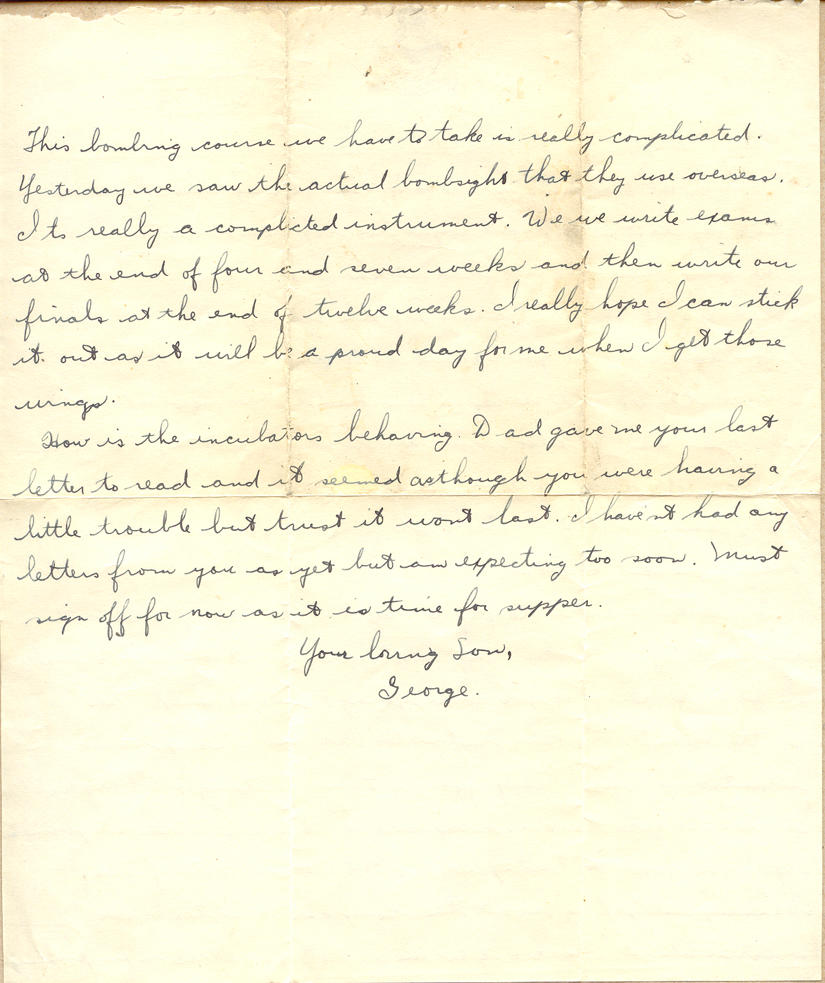 This bombing course we have to take is really complicated.
Yesterday we saw the actual bombsight that they use overseas.
Its really a complicted instrument. We we write exams
at the end of four and seven weeks and then write our
finals at the end of twelve weeks. I really hope I can stick
it out as it will be a proud day for me when I get those
wings.
How is the incubators behaving. Dad gave me your last
letter to read and it seemed asthough you were having a
little trouble but trust it wont last. I havent had any
letters from you as yet but am expecting too soon. Must
sign off for now as it is time for supper.
Your loving Son,
George.